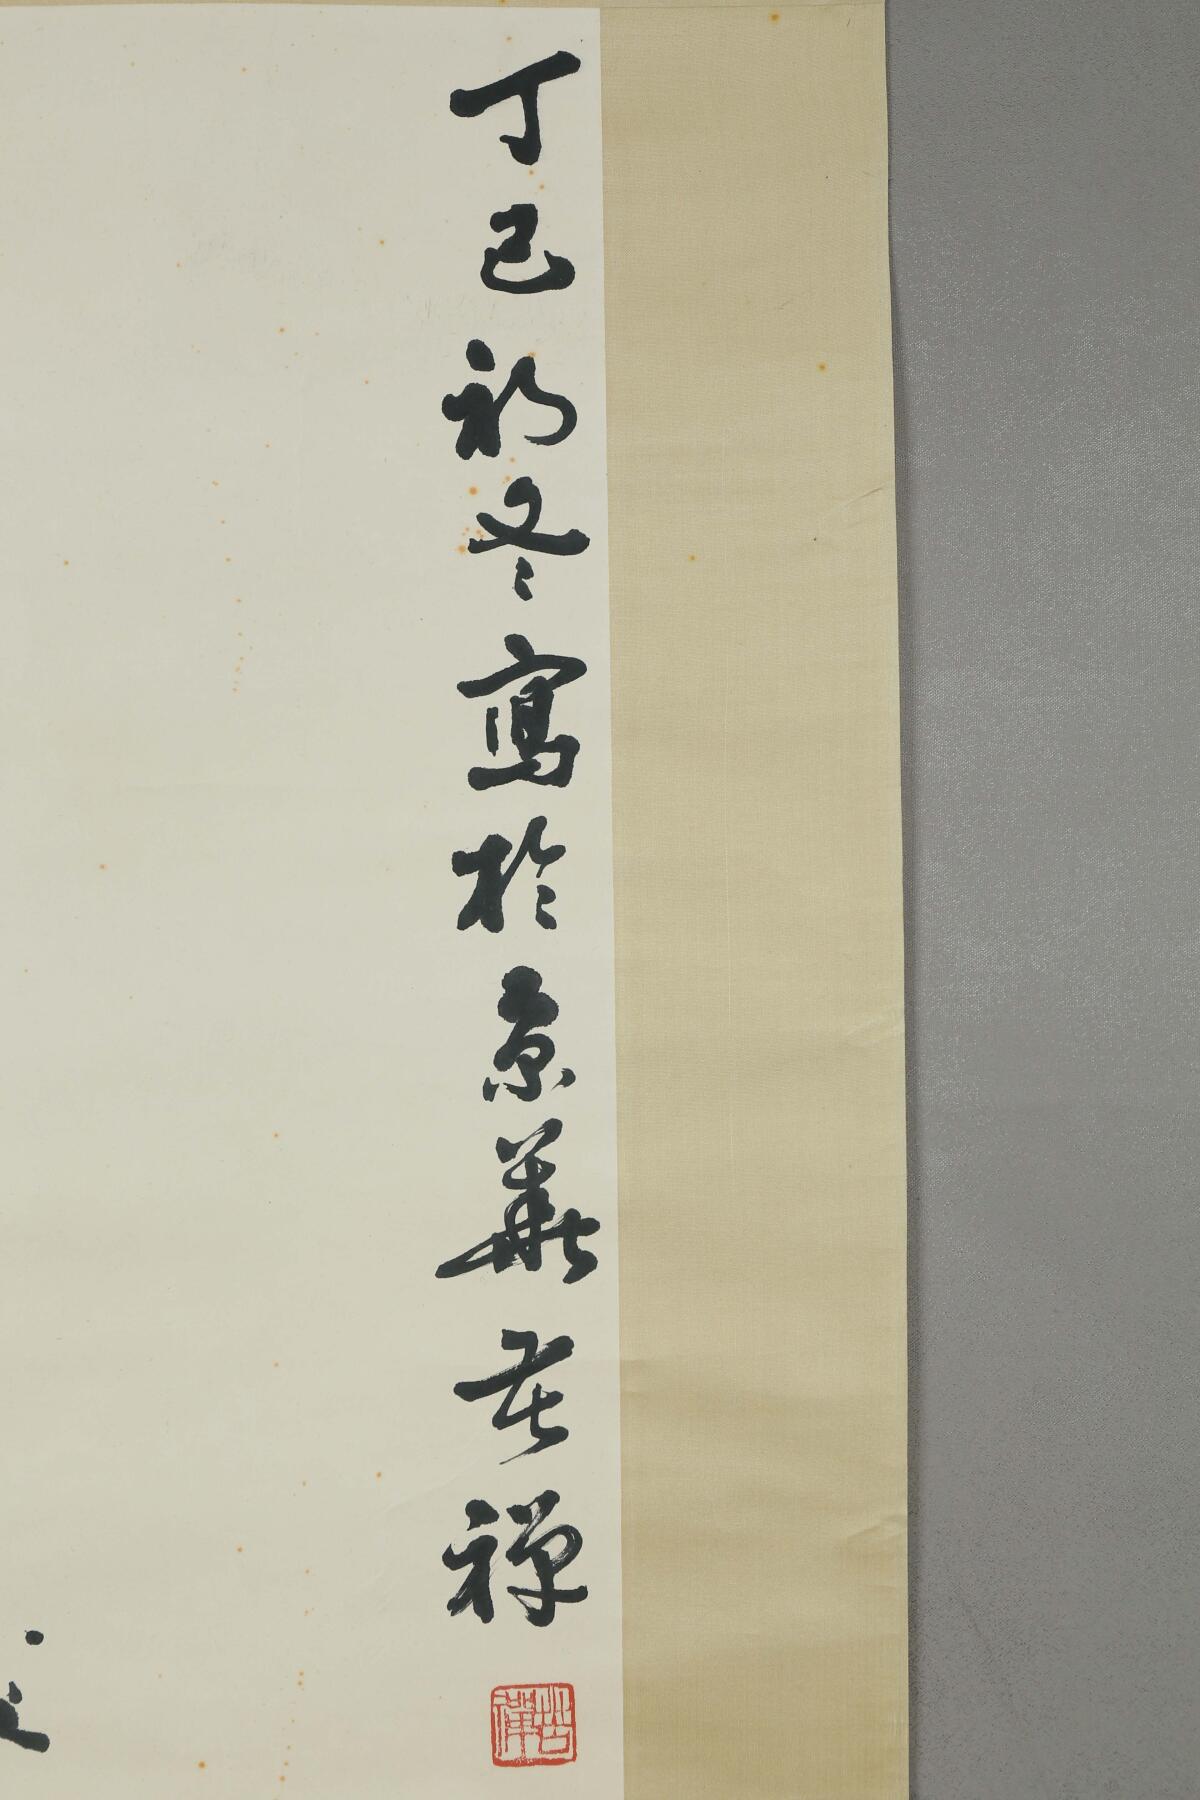 丁巳初冬寫於京華苦禪